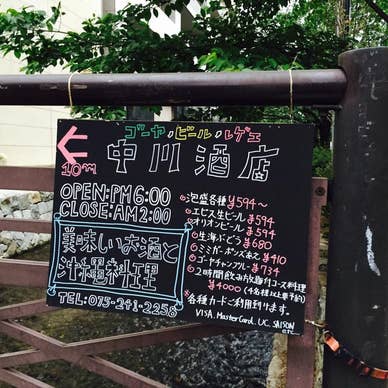 ゴーヤ・ビール・レゲエ
中川酒店
10m
OPEN:PM6:00
CLOSE:AM2:00
美味しいお酒と
沖縄料理
TEL:075-241-2258
泡盛各種 ¥594〜
エビス生ビール ¥594
オリオンビール ¥594
生海ぶどう ¥680
ミミガーポンズあえ ¥410
ゴーヤチャンプルー ¥734
2時間飲み放題付コース料理
¥4000 (4名様以上要予約)
*各種カードご利用頂けます。
VISA, MasterCard, UC, SAISON
etc...